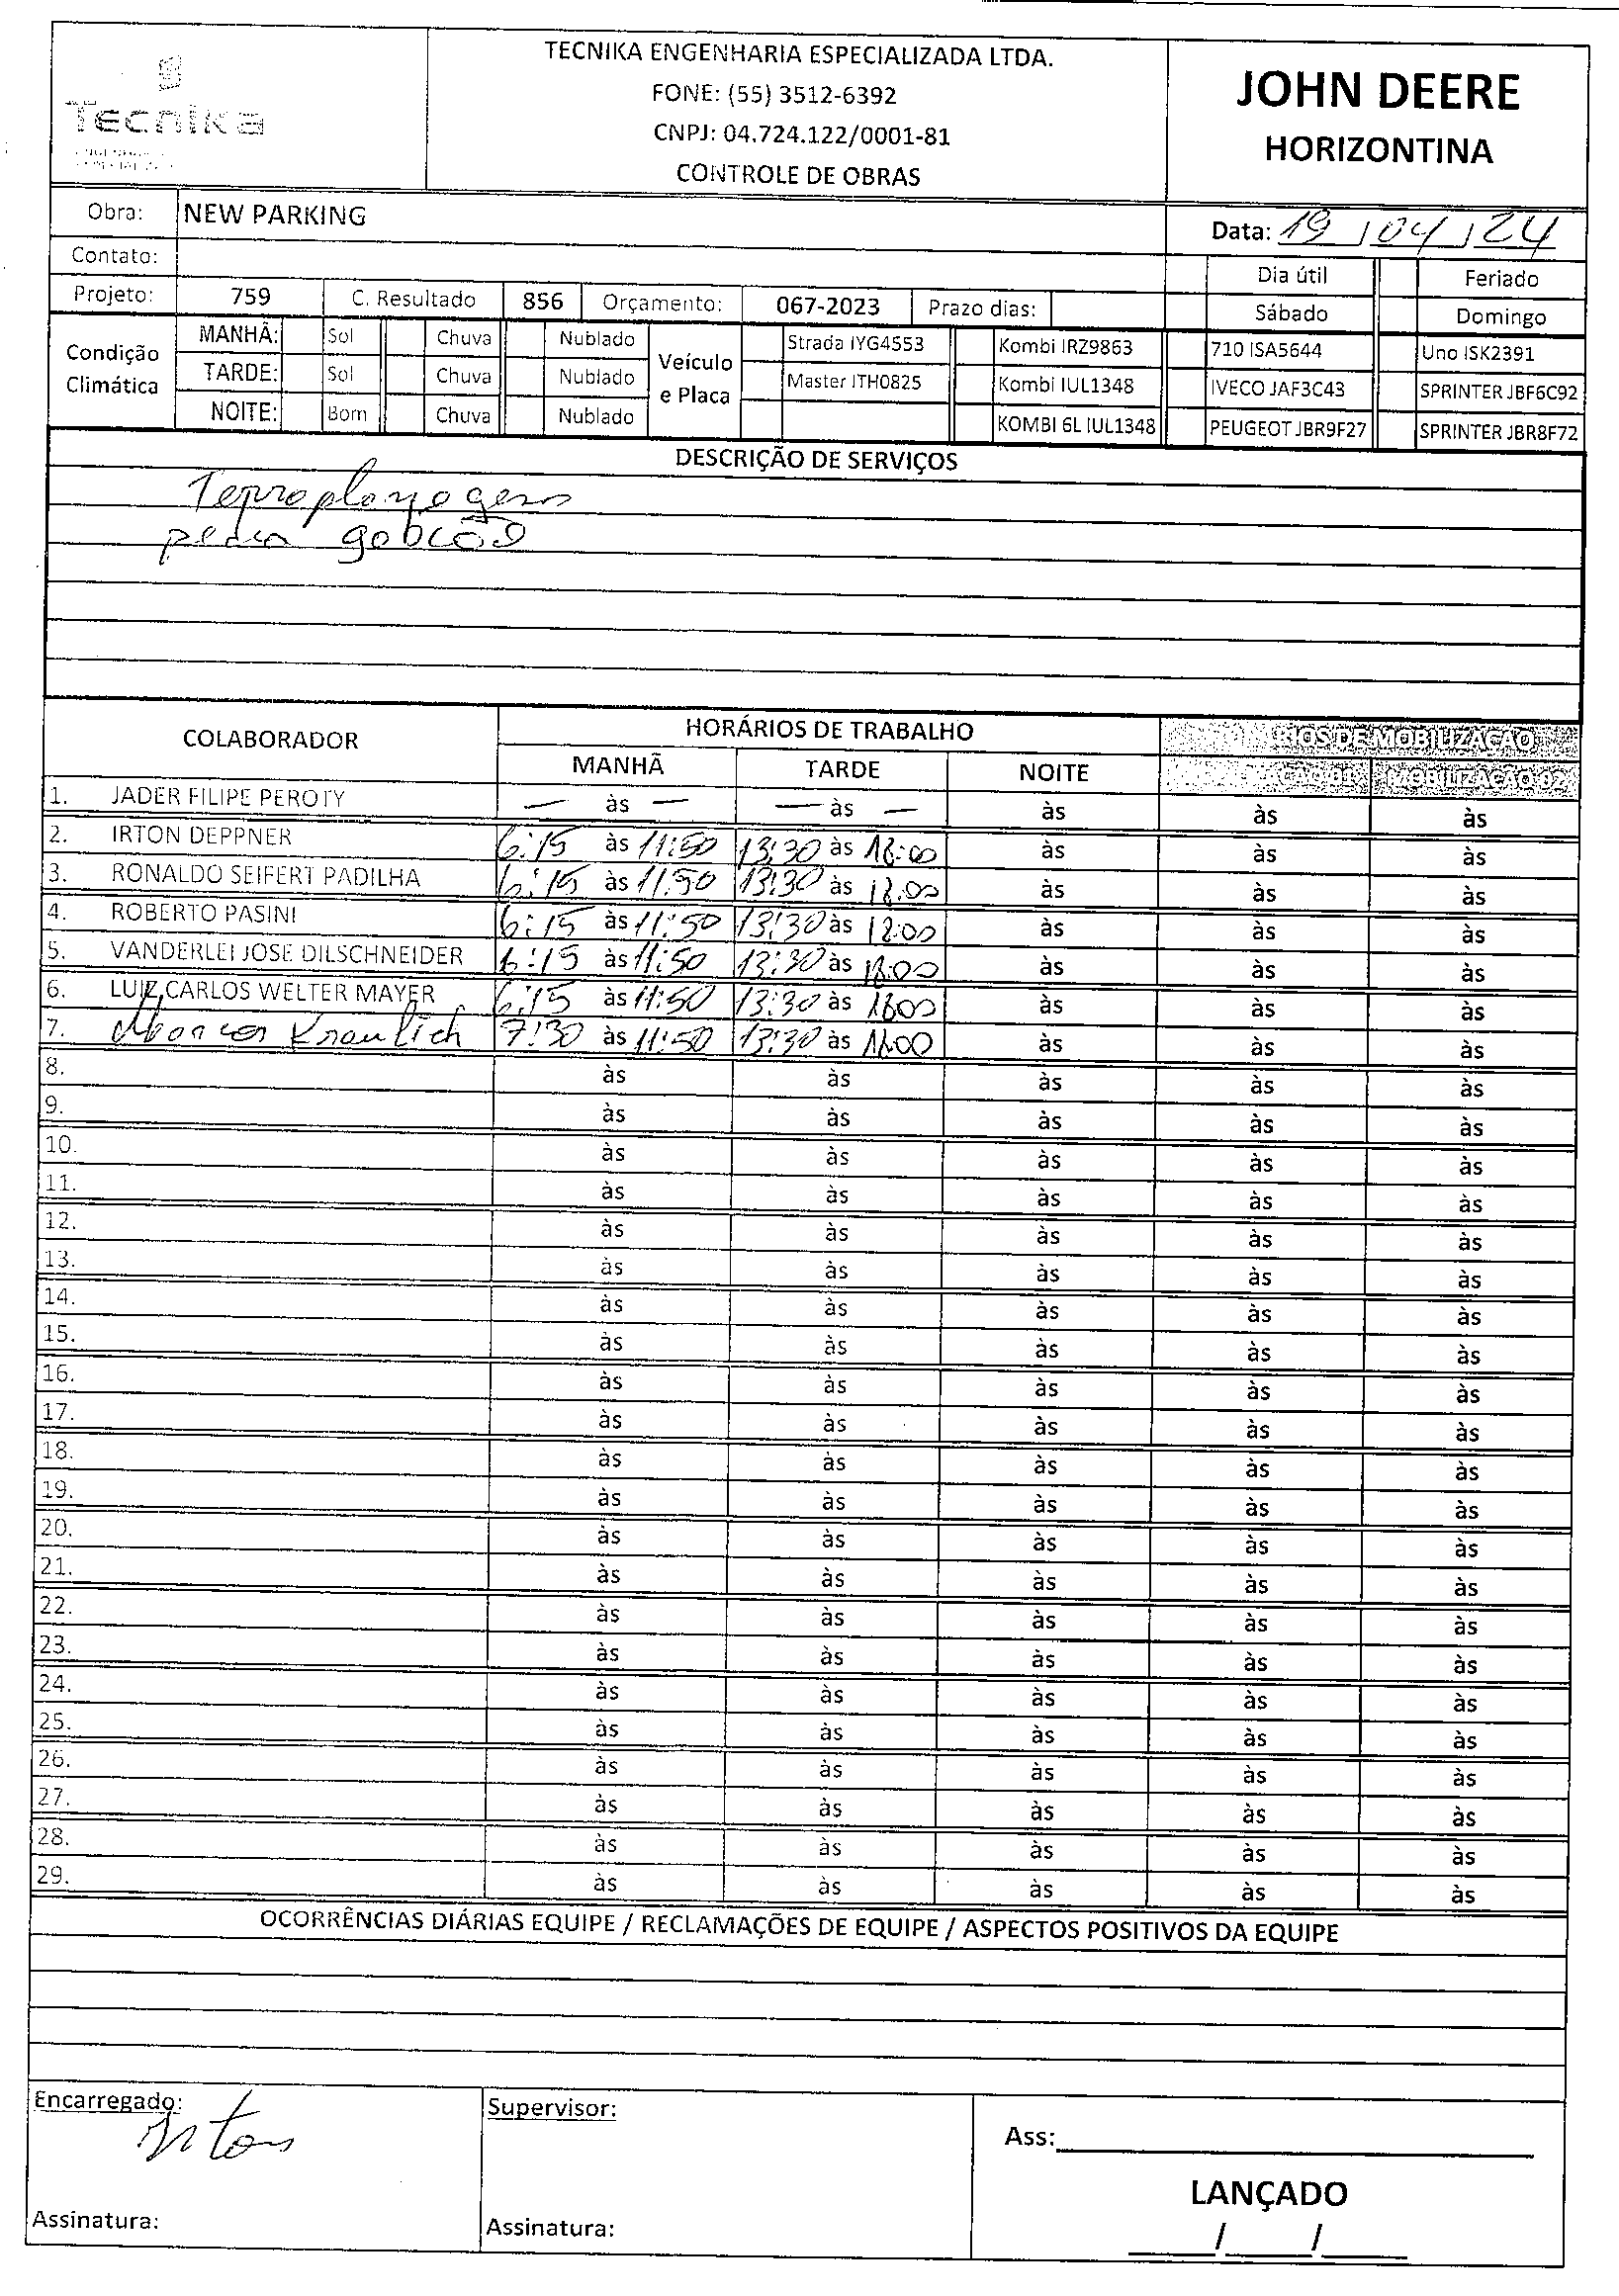 Tecnika
TECNIKA ENGENHARIA ESPECIALIZADA LTDA.
FONE: (55) 3512-6392
CNPJ: 04.724.122/0001-81
CONTROLE DE OBRAS
JOHN DEERE
HORIZONTINA
Obra: NEW PARKING
Data: 19 / 04 / 24
Contato:
Dia útil Feriado
Projeto: 759 C. Resultado 856 Orçamento: 067-2023 Prazo dias:
Sábado Domingo
Condição Climática
MANHÃ: Sol Chuva Nublado
TARDE: Sol Chuva Nublado
NOITE: Bom Chuva Nublado
Veículo e Placa
Strada IYG4553 Kombi IRZ9863 710 ISA5644 Uno ISK2391
Master ITH0825 Kombi IUL1348 IVECO JAF3C43 SPRINTER JBF6C92
KOMBI 6L IUL1348 PEUGEOT JBR9F27 SPRINTER JBR8F72
DESCRIÇÃO DE SERVIÇOS
Terraplanagem
pedra gabião
COLABORADOR HORÁRIOS DE TRABALHO RIOS DE MOBILIZAÇÃO
MANHÃ TARDE NOITE MOBILIZAÇÃO 02
1. JADER FILIPE PEROTY — às — — às — às às às
2. IRTON DEPPNER 6:15 às 11:50 13:30 às 18:00 às às às
3. RONALDO SEIFERT PADILHA 6:15 às 11:50 13:30 às 18:00 às às às
4. ROBERTO PASINI 6:15 às 11:50 13:30 às 18:00 às às às
5. VANDERLEI JOSE DILSCHNEIDER 6:15 às 11:50 13:30 às 18:00 às às às
6. LUIZ CARLOS WELTER MAYER 6:15 às 11:50 13:30 às 1800 às às às
7. 7:30 às 11:50 13:30 às 18:00 às às às
8. às às às às às
9. às às às às às
10. às às às às às
11. às às às às às
12. às às às às às
13. às às às às às
14. às às às às às
15. às às às às às
16. às às às às às
17. às às às às às
18. às às às às às
19. às às às às às
20. às às às às às
21. às às às às às
22. às às às às às
23. às às às às às
24. às às às às às
25. às às às às às
26. às às às às às
27. às às às às às
28. às às às às às
29. às às às às às
OCORRÊNCIAS DIÁRIAS EQUIPE / RECLAMAÇÕES DE EQUIPE / ASPECTOS POSITIVOS DA EQUIPE
Encarregado: Supervisor:
Irton
Ass:
LANÇADO
Assinatura: Assinatura:
/ /